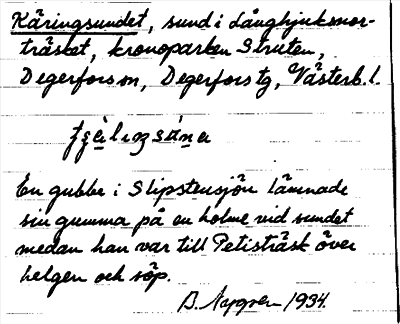 Käringsundet, sund i Långhjuksmor-
träsket, kronoparken Struten,
Degerfors sn, Degerfors tg, Västerb. l.
En gubbe i Slipstensjön lämnade
sin gumma på en holme vid sundet
medan han var till Petisträsk över
helgen och söp.
B. 1934.